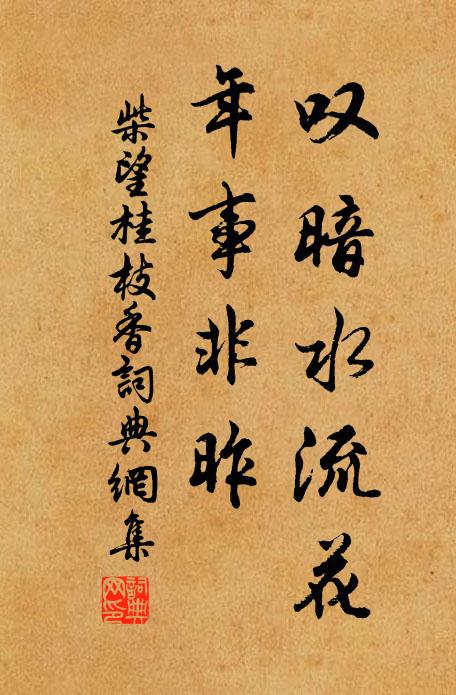 叹暗水流花
年事非昨
柴望桂枝香詞典網集
詞典網印